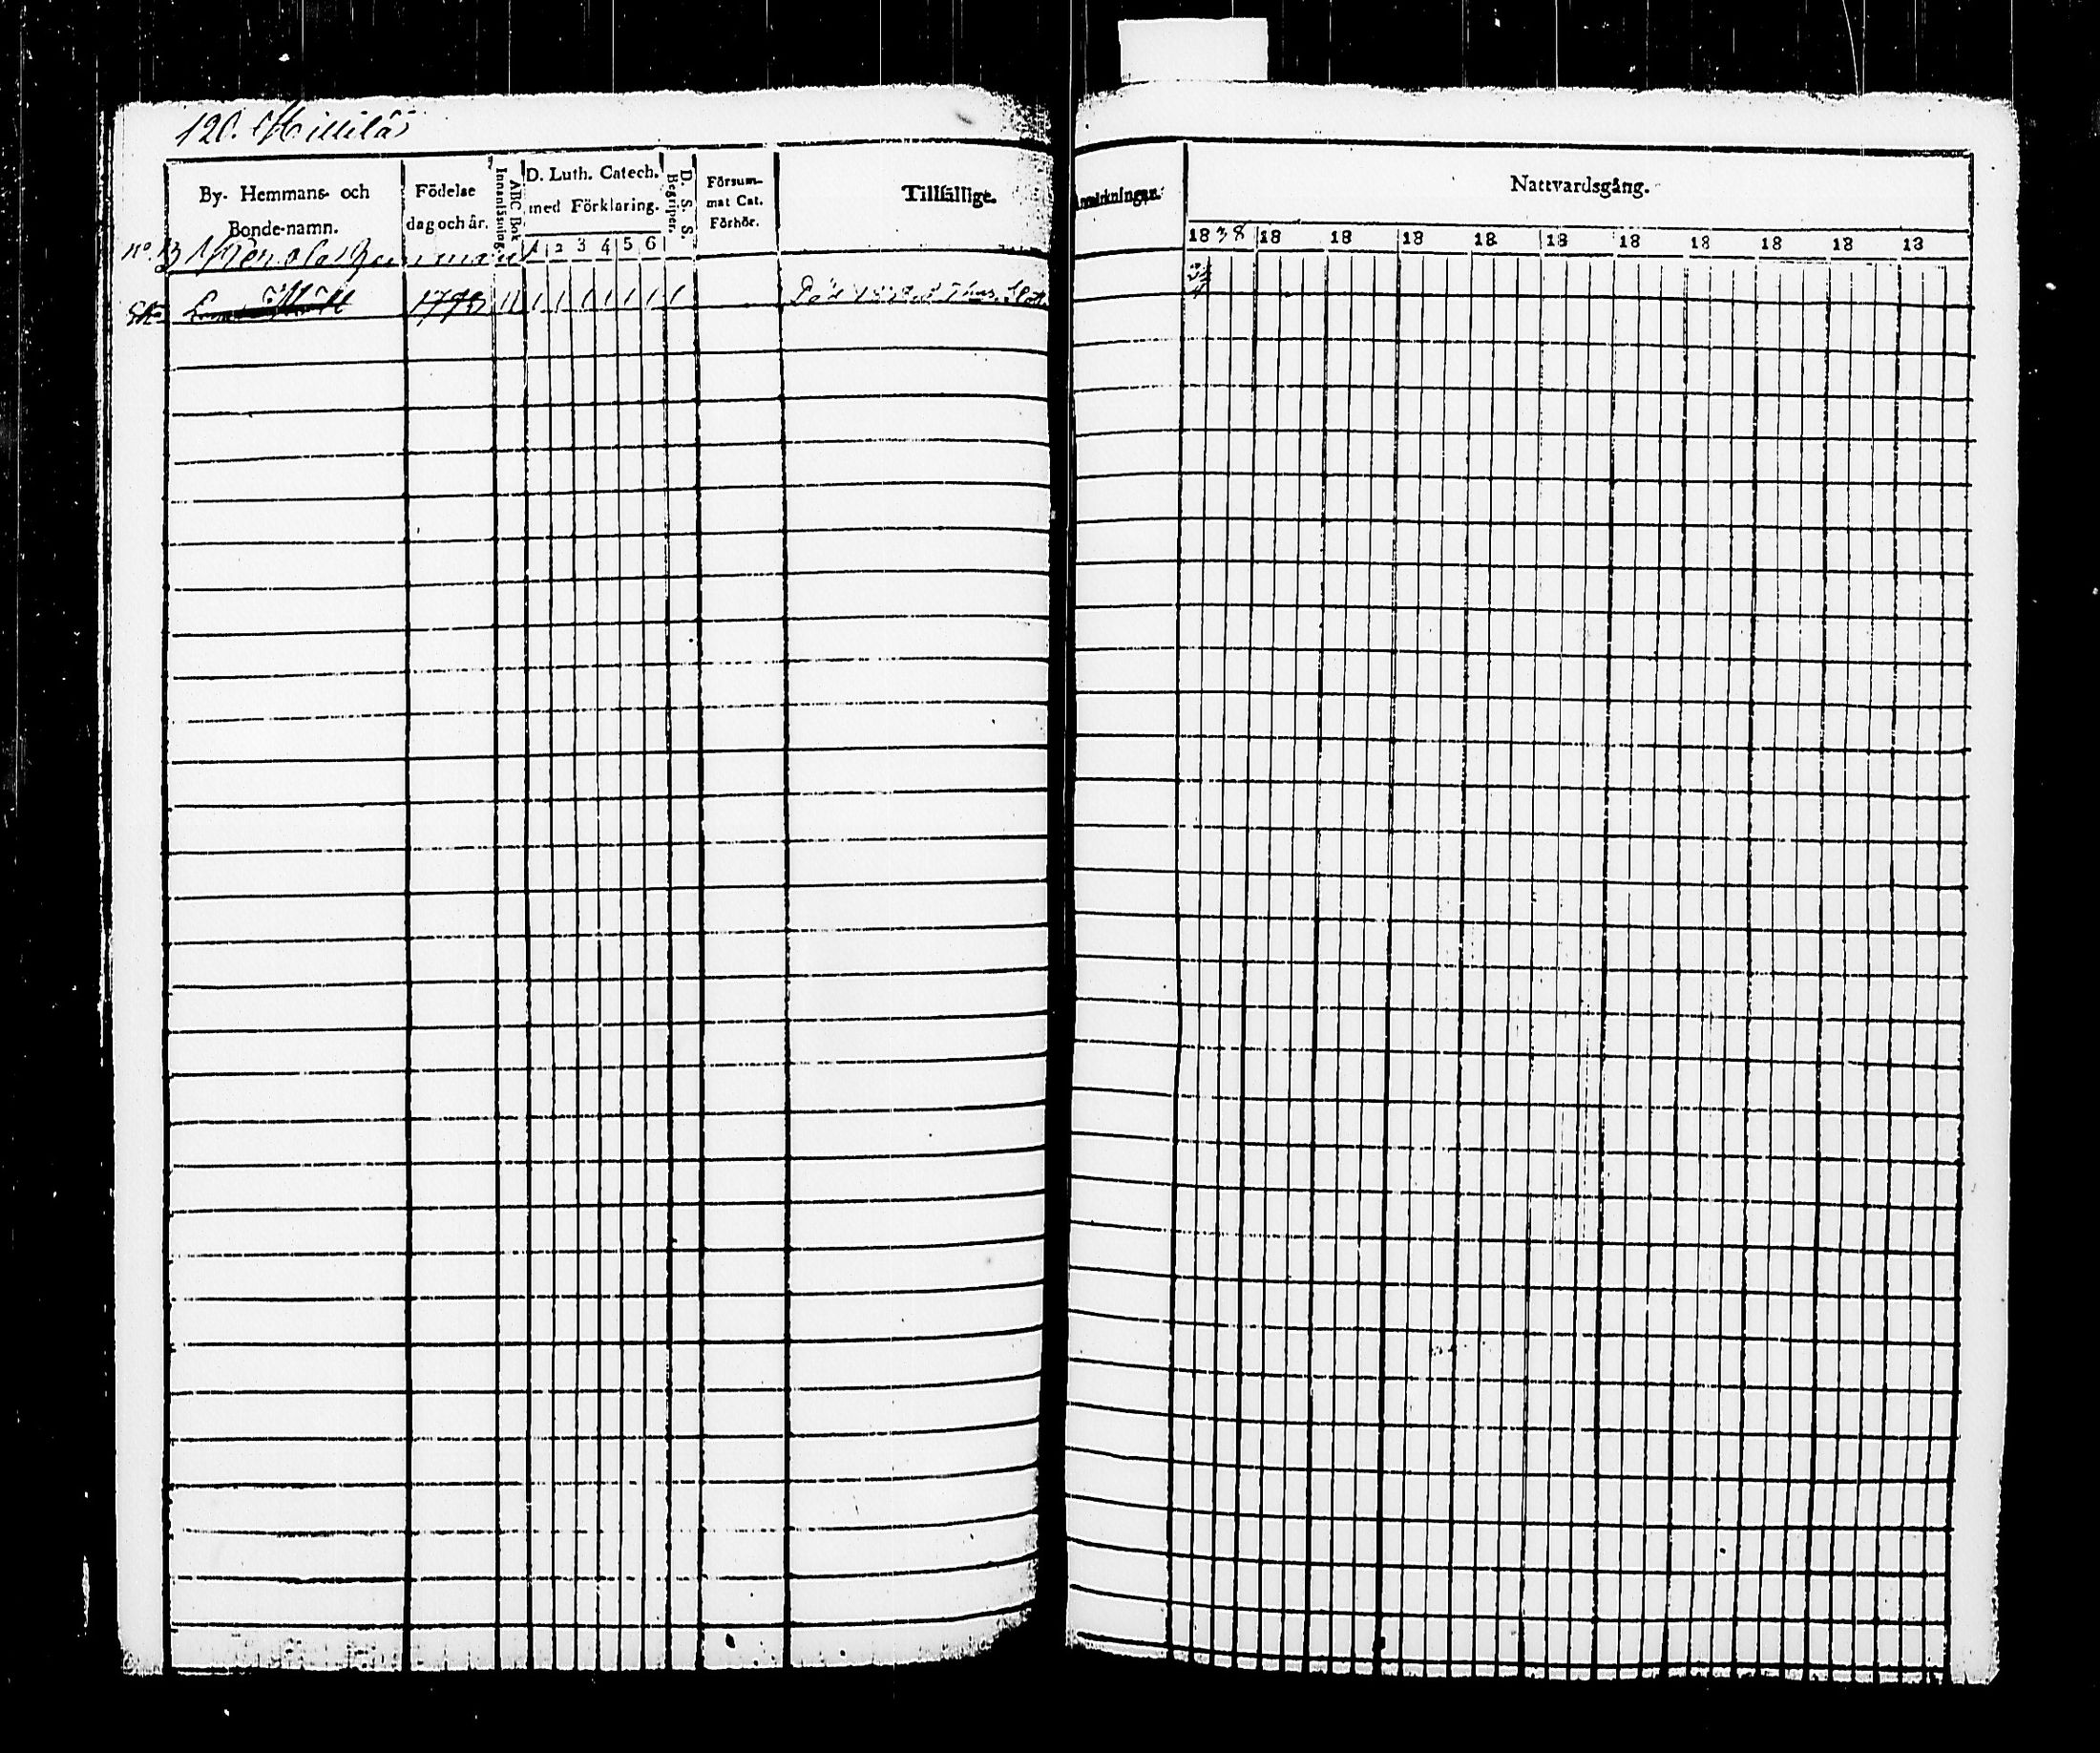 120. Millilä
By- Hemmans- och Bonde-namn.
Födelse dag och år.
ABC Bok Innanläsning.
D. Luth. Catech. med Förklaring.
1 2 3 4 5 6
D. S. S. Begriper.
Försummat Cat. Förhör.
Tillfällige. Anmärkningar.
Nattvardsgång.
1838 18 18 18 18 18 18 18 18 18 18
n:o 13
1773
Död